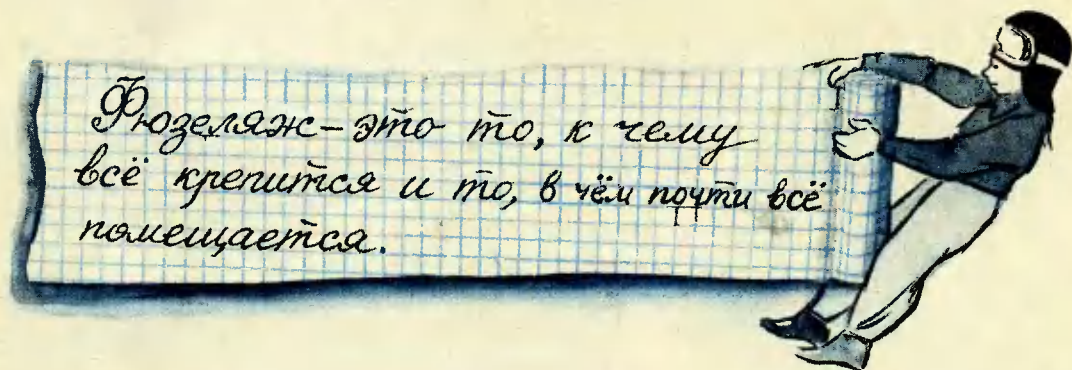 Фюзеляж – это то, к чему
всё крепится и то, в чём почти всё
помещается.